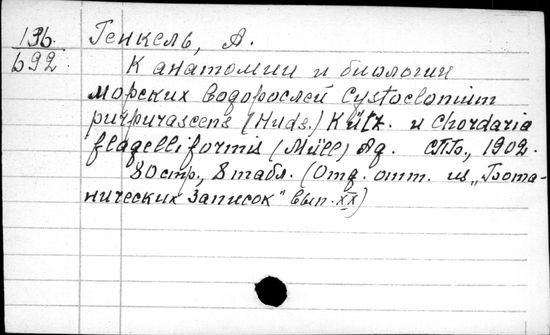 136. Генкель, А.
692. К анатомии и биологии
морских водорослей Cystoclonium
purpurascens (Huds.) Kütz. и Chordaria
flagelliformis (Müll) Ag. СПБ., 1902.
80стр., 8 табл. (Отд. отт. из „Бота-
нических Записок" вып. XX)